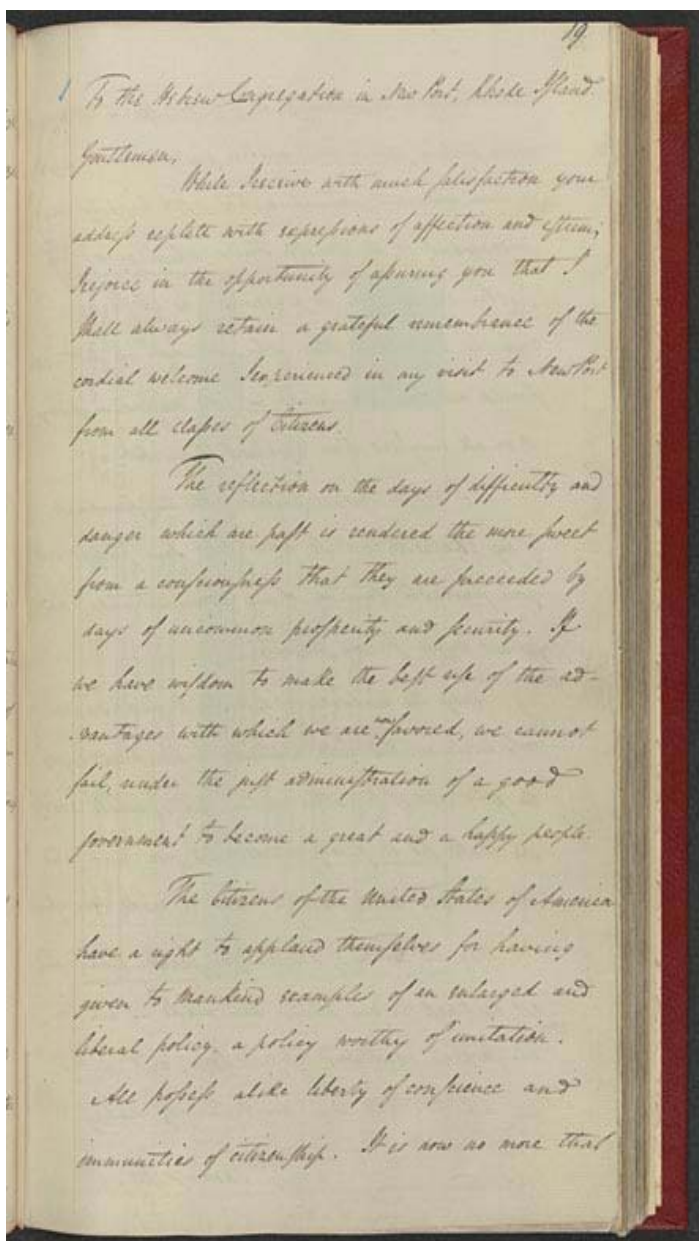 19
To the Hebrew Congregation in New Port, Rhode Island.
Gentlemen,
While I receive with much satisfaction your
address replete with expressions of affection and esteem;
I rejoice in the opportunity of assuring you that I
shall always retain a grateful remembrance of the
cordial welcome I experienced in my visit to New Port
from all classes of Citizens.
The reflection on the days of difficulty and
danger which are past is rendered the more sweet
from a consciousness that they are succeeded by
days of uncommon prosperity and security. If
we have wisdom to make the best use of the ad-
vantages with which we are now favored, we cannot
fail, under the just administration of a good
government to become a great and a happy people.
The Citizens of the United States of America
have a right to applaud themselves for having
given to Mankind examples of an enlarged and
liberal policy, a policy worthy of imitation.
All possess alike liberty of conscience and
immunities of citizenship. It is now no more that